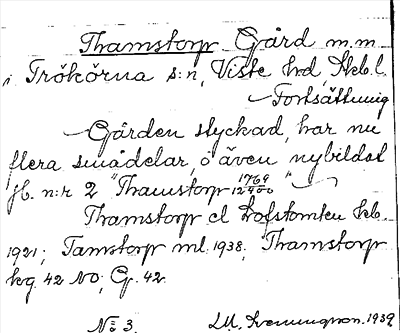 Thamstorp Gård m.m
i Trökörna s:n, Viste hrd, Skb.l.
Fortsättning
Gården styckad, har nu
flera smådelar, o även nybildat
jb. n:r 2 "Thamstorp 1769/12400"
Thamstorp el Loftstomten kb.
1921; Tamstorp ml. 1938; Thamstorp
kg. 42 NO; G. 42.
No 3. LM. Svenungson. 1939